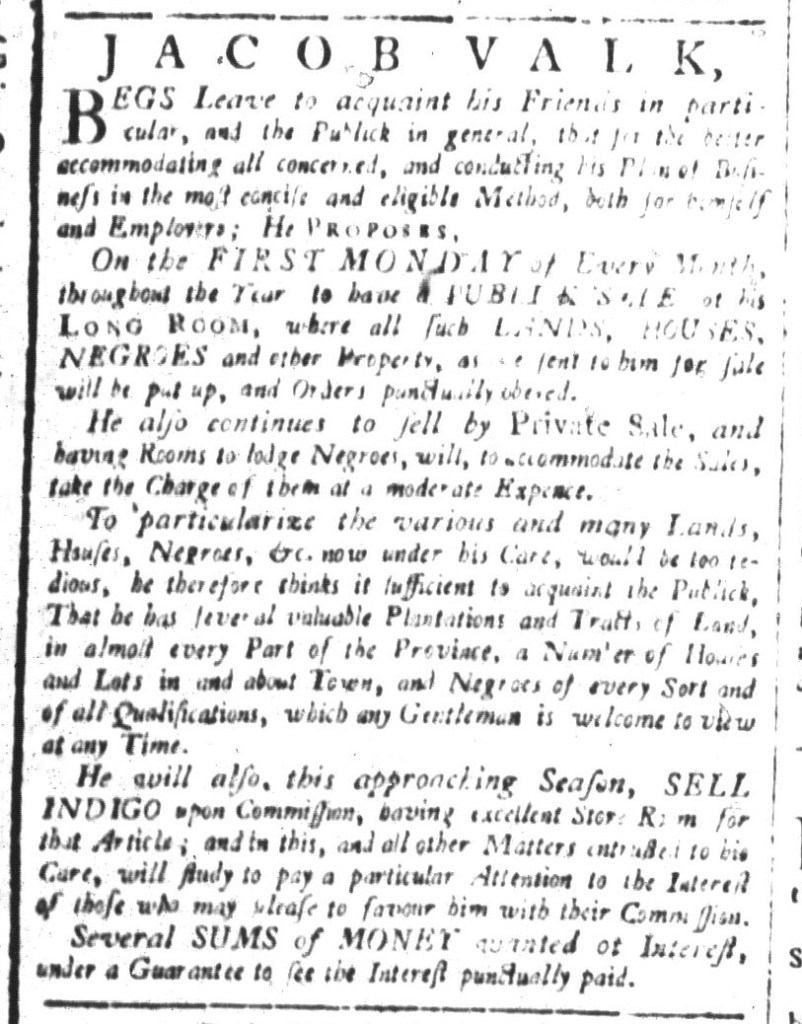 JACOB VALK,
BEGS Leave to acquaint his Friends in parti-
cular, and the Publick in general, that for the better
accommodating all concerned, and conducting his Plan of Busi-
neſs in the moſt conciſe and eligible Method, both for himſelf
and Employers; He PROPOSES,
On the FIRST MONDAY of Every Month,
throughout the Year to have a PUBLICK SALE at his
LONG ROOM, where all ſuch LANDS, HOUSES,
NEGROES and other Property, as are ſent to him for ſale
will be put up, and Orders punctually obeyed.
He alſo continues to ſell by Private Sale, and
having Rooms to lodge Negroes, will, to accommodate the Sales,
take the Charge of them at a moderate Expence.
To particularize the various and many Lands,
Houſes, Negroes, &c. now under his Care, would be too te-
dious, he therefore thinks it ſufficient to acquaint the Publick,
That he has ſeveral valuable Plantations and Tracts of Land,
in almoſt every Part of the Province, a Number of Houſes
and Lots in and about Town, and Negroes of every Sort and
of all Qualifications, which any Gentleman is welcome to view
at any Time.
He will alſo, this approaching Seaſon, SELL
INDIGO upon Commiſſion, having excellent Store Room for
that Article; and in this, and all other Matters entruſted to his
Care, will ſtudy to pay a particular Attention to the Intereſt
of thoſe who may pleaſe to favour him with their Commiſſion.
Several SUMS of MONEY wanted at Intereſt,
under a Guarantee to ſee the Intereſt punctually paid.